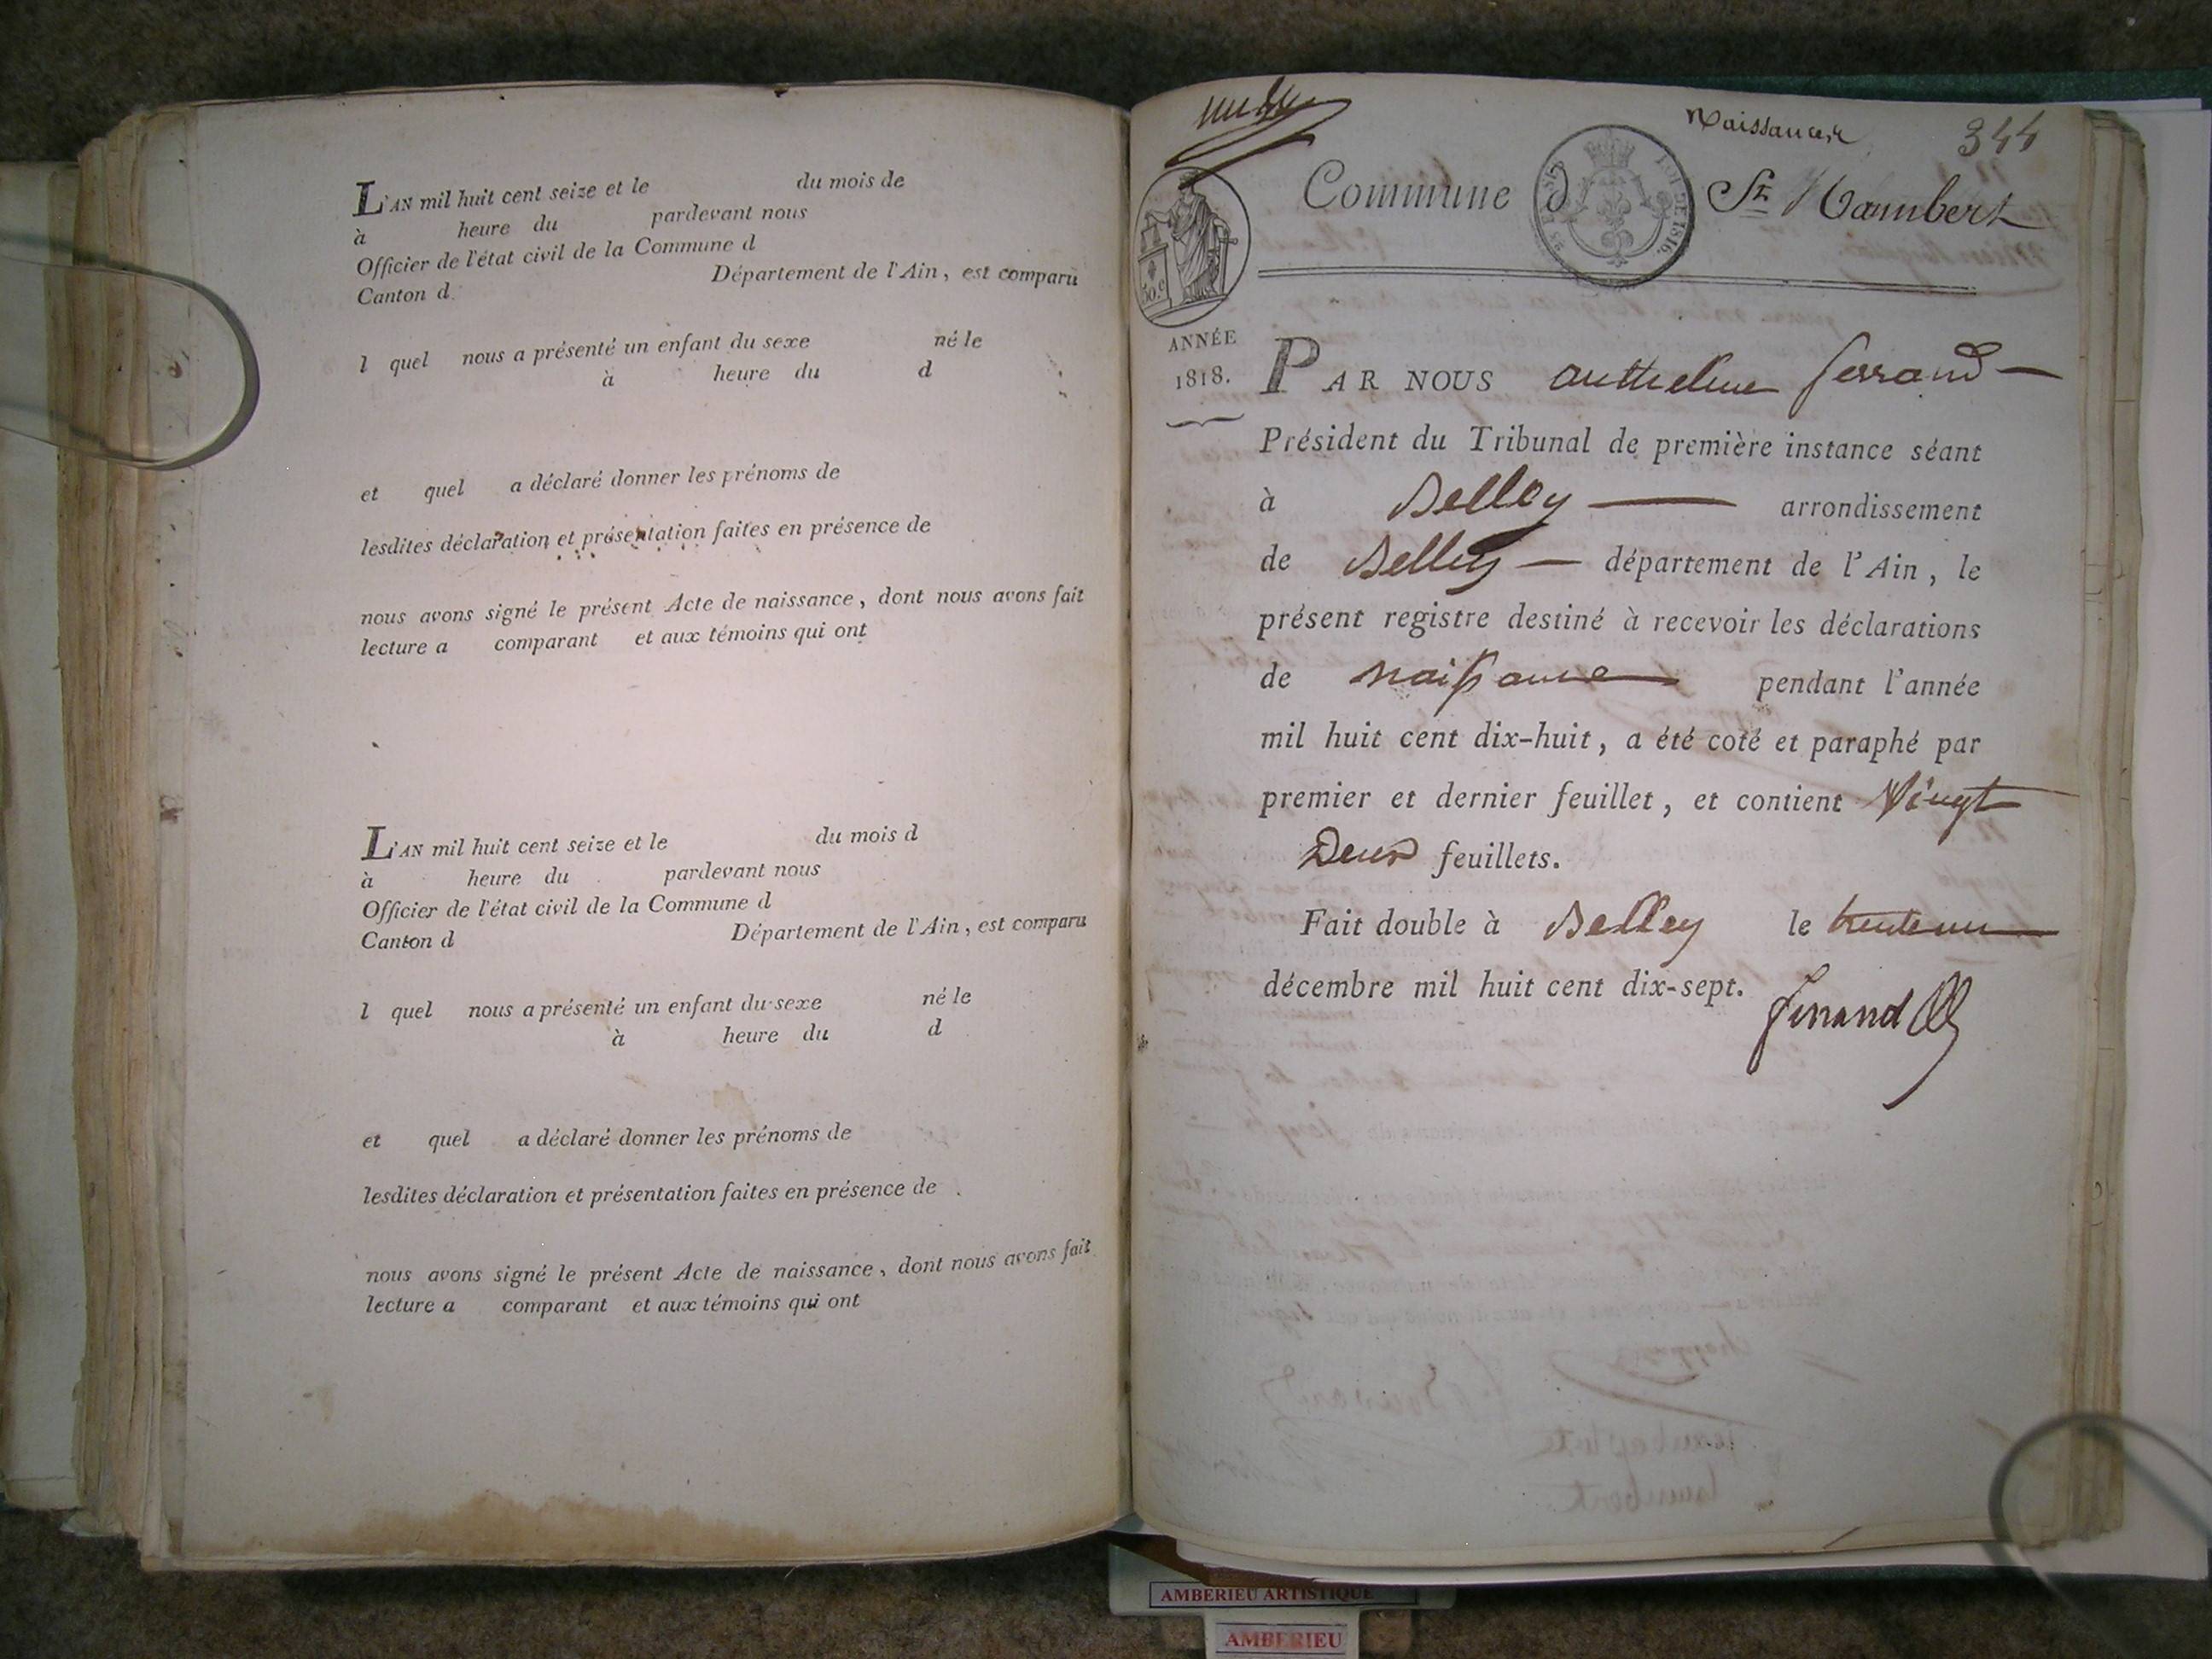 L'AN mil huit cent seize et le du mois de
à heure du pardevant nous
Officier de l'état civil de la Commune d
Canton d Département de l'Ain, est comparu
l quel nous a présenté un enfant du sexe né le
à heure du d
et quel a déclaré donner les prénoms de
lesdites déclaration et présentation faites en présence de
nous avons signé le présent Acte de naissance, dont nous avons fait
lecture a comparant et aux témoins qui ont
L'AN mil huit cent seize et le du mois d
à heure du pardevant nous
Officier de l'état civil de la Commune d
Canton d Département de l'Ain, est comparu
l quel nous a présenté un enfant du sexe né le
à heure du d
et quel a déclaré donner les prénoms de
lesdites déclaration et présentation faites en présence de
nous avons signé le présent Acte de naissance, dont nous avons fait
lecture a comparant et aux témoins qui ont
Naissances 344
Commune d St Rambert
LOI DE 1816.
50.c
ANNÉE
1818.
PAR NOUS anthelme ferrand
Président du Tribunal de première instance séant
à Belley arrondissement
de Belley département de l'Ain, le
présent registre destiné à recevoir les déclarations
de naissance pendant l'année
mil huit cent dix-huit, a été coté et paraphé par
premier et dernier feuillet, et contient Vingt
Deux feuillets.
Fait double à Belley le trente un
décembre mil huit cent dix-sept.
ferrand
AMBERIEU ARTISTIQUE
AMBERIEU